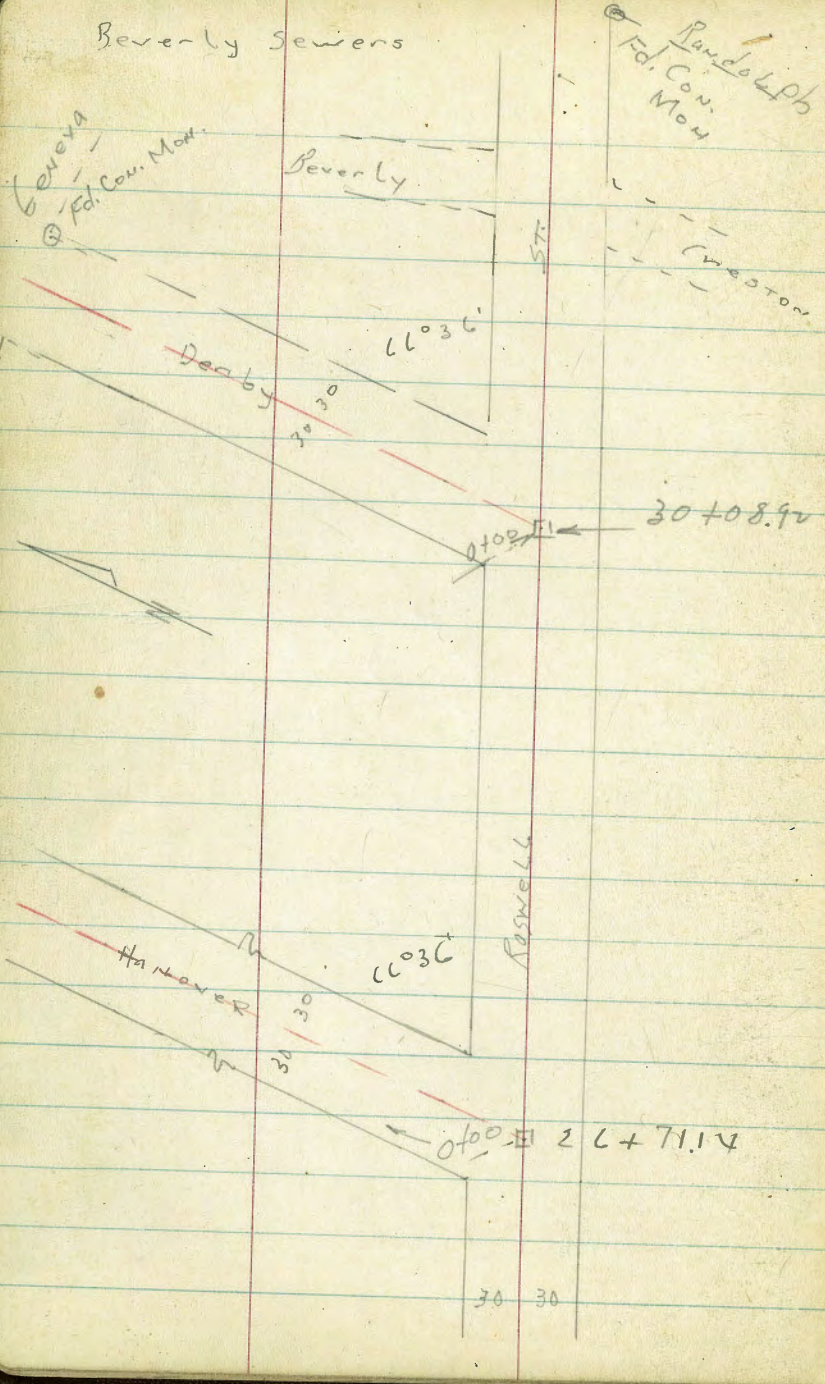 Beverly Sewers
Randolph
Fd. Con.
Mon
Geneva
Fd. Con. Mon.
Beverly
St.
Creston
66°36'
Denby
30 30
0+00
30+08.92
N
Roswell
66°36'
Hanover
30
30
0+00
26+71.14
30 30